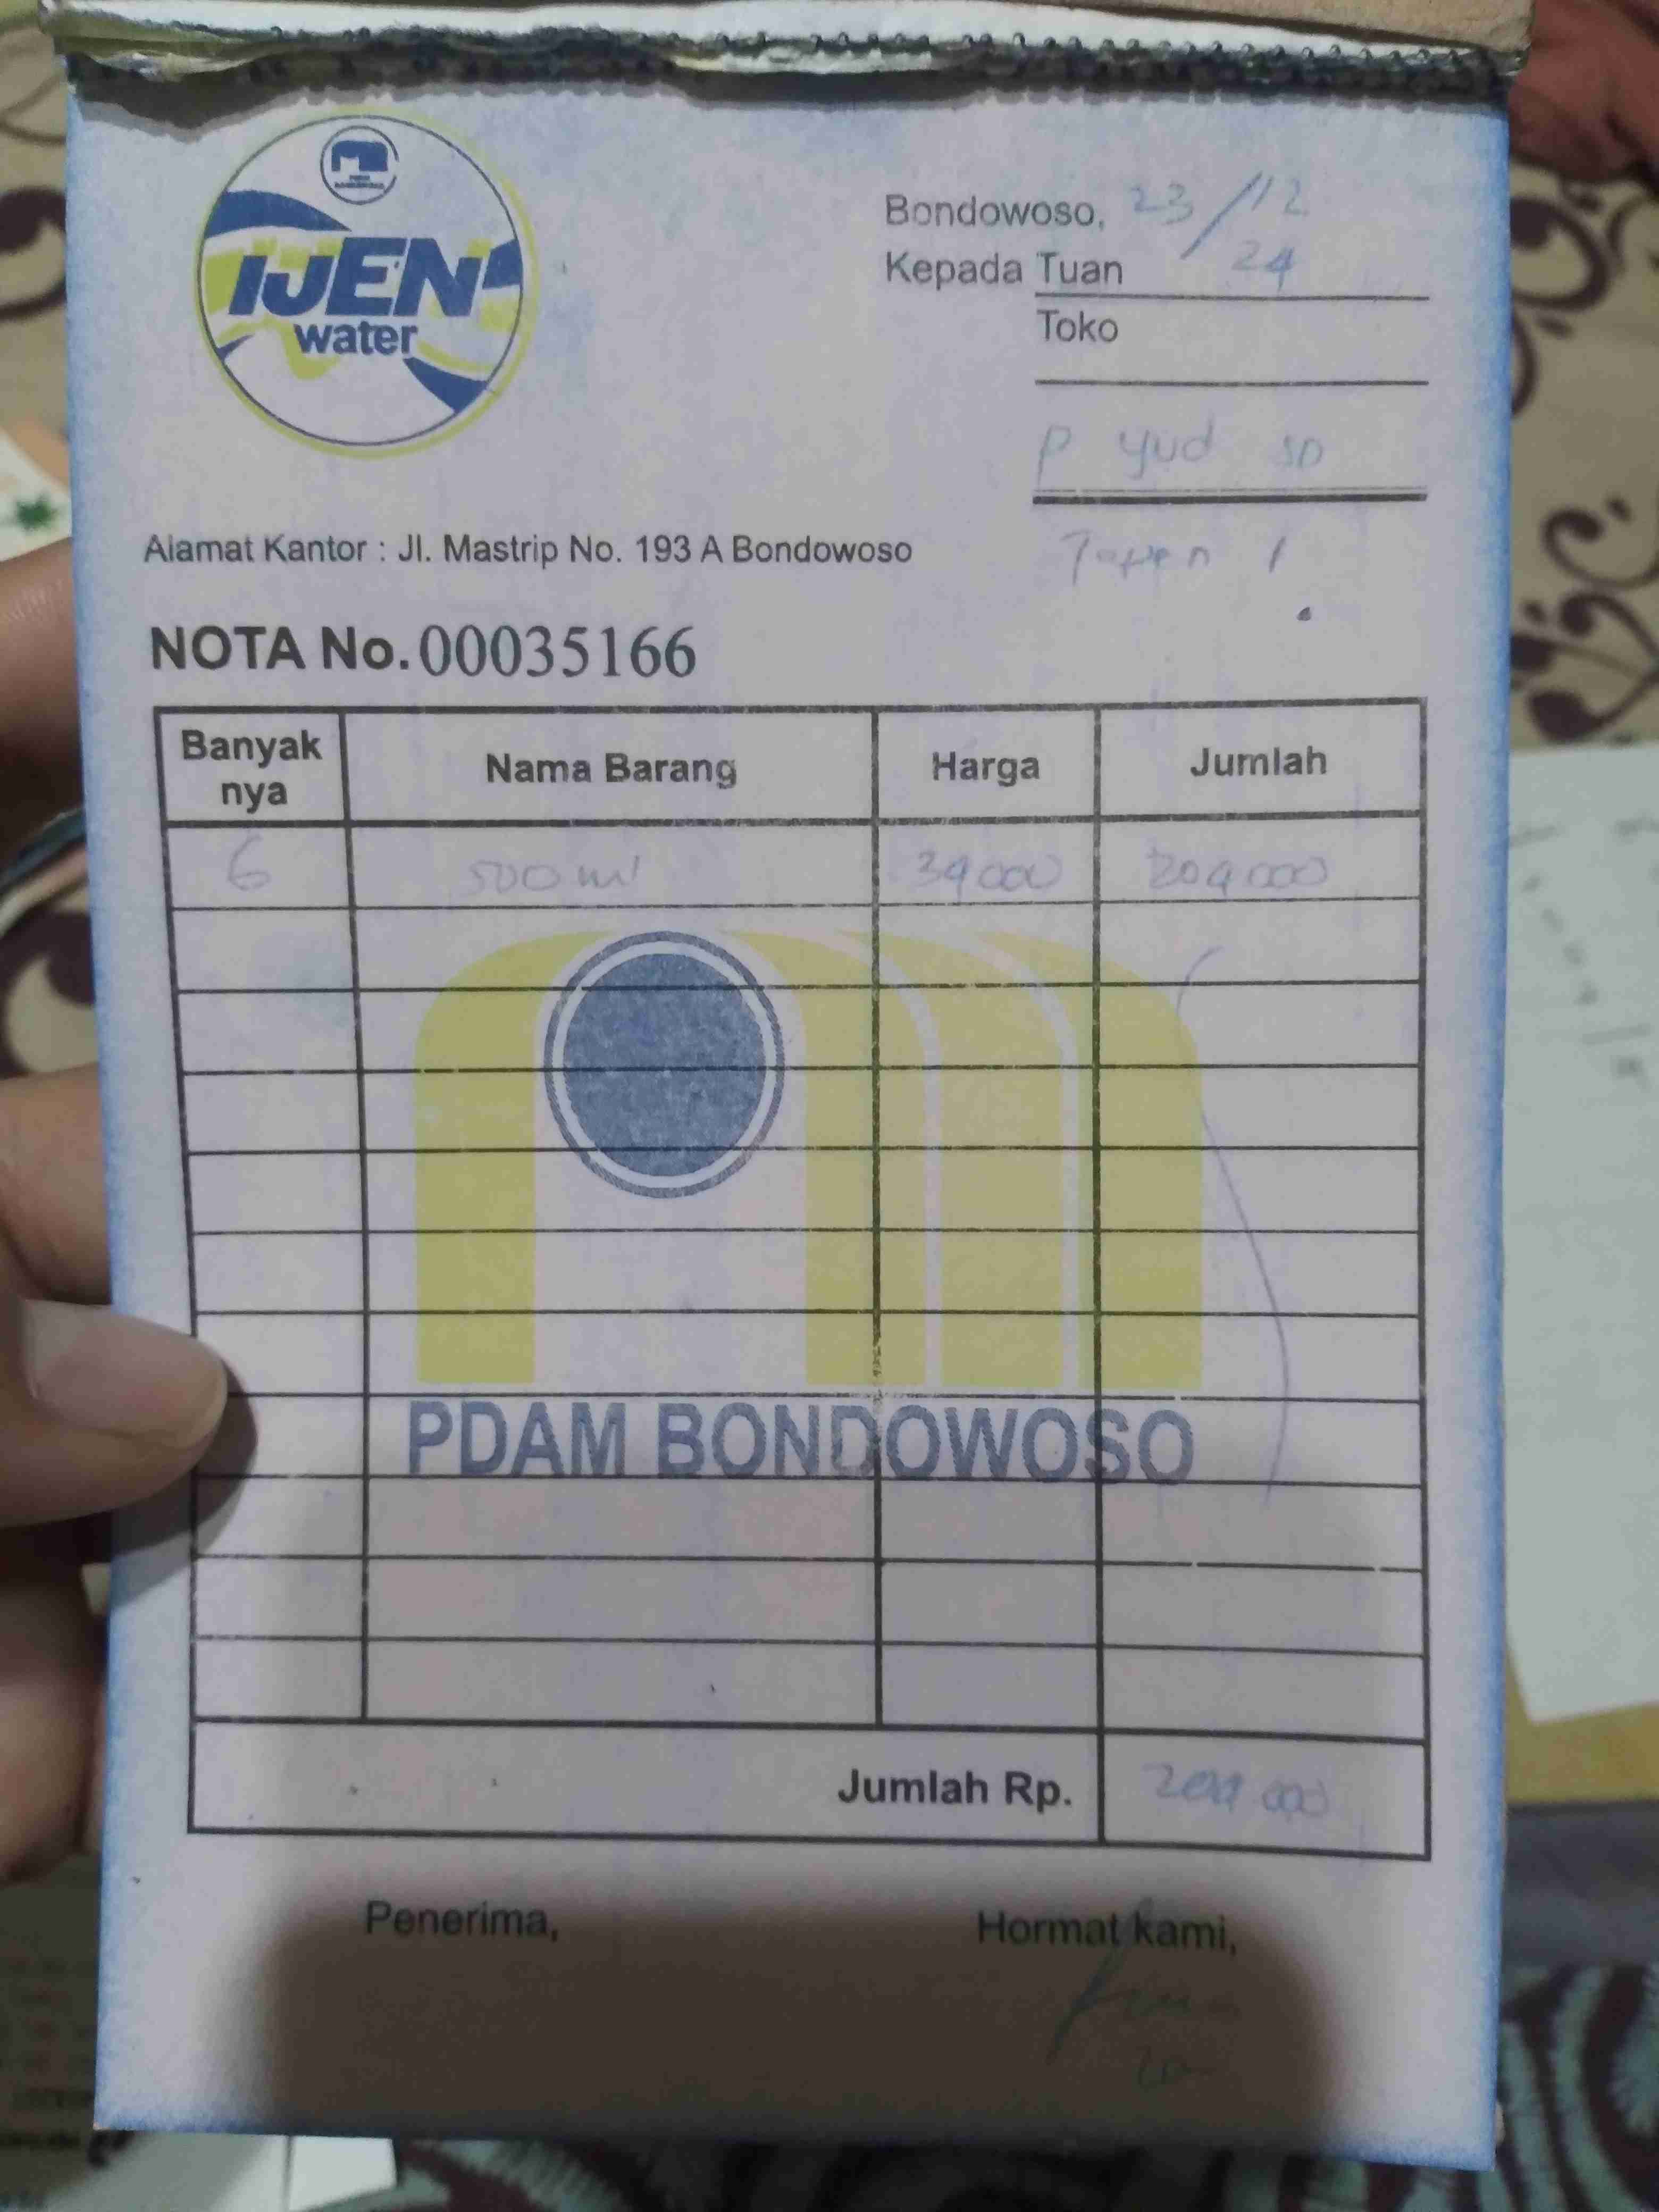 IJEN
water
Bondowoso, 23/12
Kepada Tuan 24
Toko
P yud SD
Tapen 1
Alamat Kantor : Jl. Mastrip No. 193 A Bondowoso
NOTA No. 00035166
Banyak nya Nama Barang Harga Jumlah
6 500 ml 34000 204000
PDAM BONDOWOSO
Jumlah Rp. 204 000
Penerima, Hormat kami,